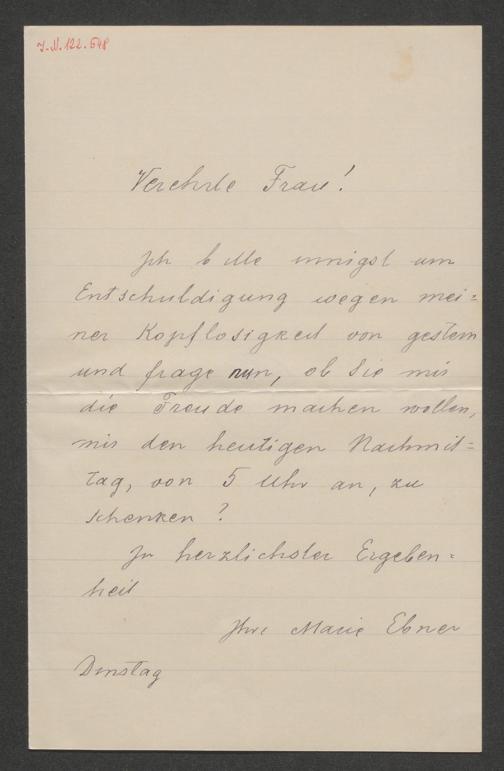 J.N. 122.648
Verehrte Frau!
Ich bitte innigst um
Entschuldigung wegen mei=
ner Kopflosigkeit von gestern
und frage nun, ob Sie mir
die Freude machen wollen,
mir den heutigen Nachmit=
tag, von 5 Uhr an, zu
schenken?
In herzlichster Ergeben=
heit
Ihre Marie Ebner
Dinstag